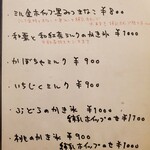 ・ミルク金ホイップ黒みつきなこ ¥800
・和栗と和紅茶ミルクのかき氷 ¥1000
・かぼちゃミルク ¥900
・いちじくミルク ¥900
・ぶどうのかき氷 ¥1000
練乳ホイップのせ ¥1100
・桃のかき氷 ¥900
練乳ホイップのせ ¥1000